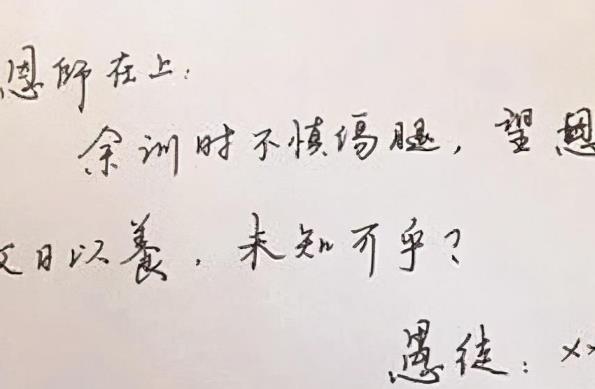 恩师在上:
余训时不慎伤腿,望恩
日以养,未知可乎?
愚徒:xx